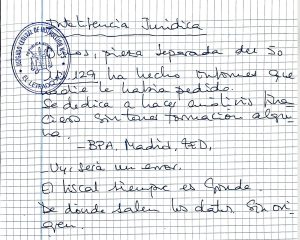 Inteligencia Jurídica
pieza separada del SO
129, ha hecho informes que
nadie le había pedido.
Se dedica a hacer análisis fina
ciero sin tener formación algu
na.
-BPA, Madrid,
-Uy, será un error.
El fiscal siempre es Grinda.
De dónde salen los datos sin ori
gen.